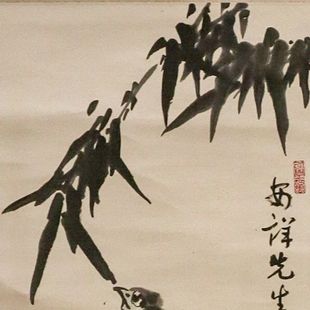 安祥先生